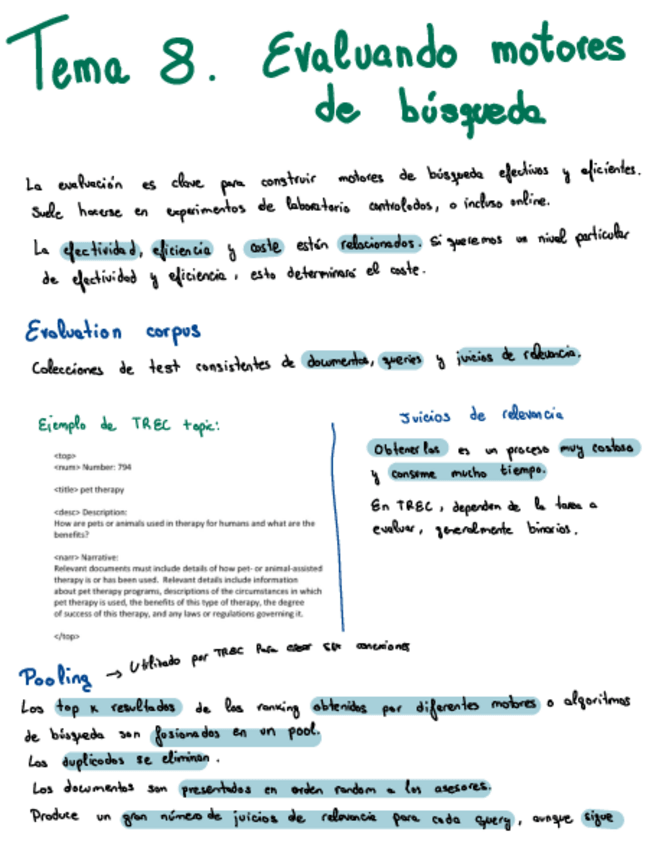 Tema 8. Evaluando motores
de búsqueda
La evaluación es clave para construir motores de búsqueda efectivos y eficientes.
Suele hacerse en experimentos de laboratorio controlados, o incluso online.
La efectividad, eficiencia y coste están relacionados. Si queremos un nivel particular
de efectividad y eficiencia, esto determinará el coste.
Evaluation corpus
Colecciones de test consistentes de documentos, queries y juicios de relevancia.
Ejemplo de TREC topic:
<top>
<num> Number: 794
<title> pet therapy
<desc> Description:
How are pets or animals used in therapy for humans and what are the
benefits?
<narr> Narrative:
Relevant documents must include details of how pet- or animal-assisted
therapy is or has been used. Relevant details include information
about pet therapy programs, descriptions of the circumstances in which
pet therapy is used, the benefits of this type of therapy, the degree
of success of this therapy, and any laws or regulations governing it.
</top>
Juicios de relevancia
Obtenerlos es un proceso muy costoso
y consume mucho tiempo.
En TREC, dependen de la tarea a
evaluar, generalmente binarios.
Pooling → Utilizado por TREC para crear sus
Los top k resultados de los ranking obtenidos por diferentes motores o algoritmos
de búsqueda son fusionados en un pool.
Los duplicados se eliminan.
Los documentos son presentados en orden random a los asesores.
Produce un gran número de juicios de relevancia para cada query, aunque sigue